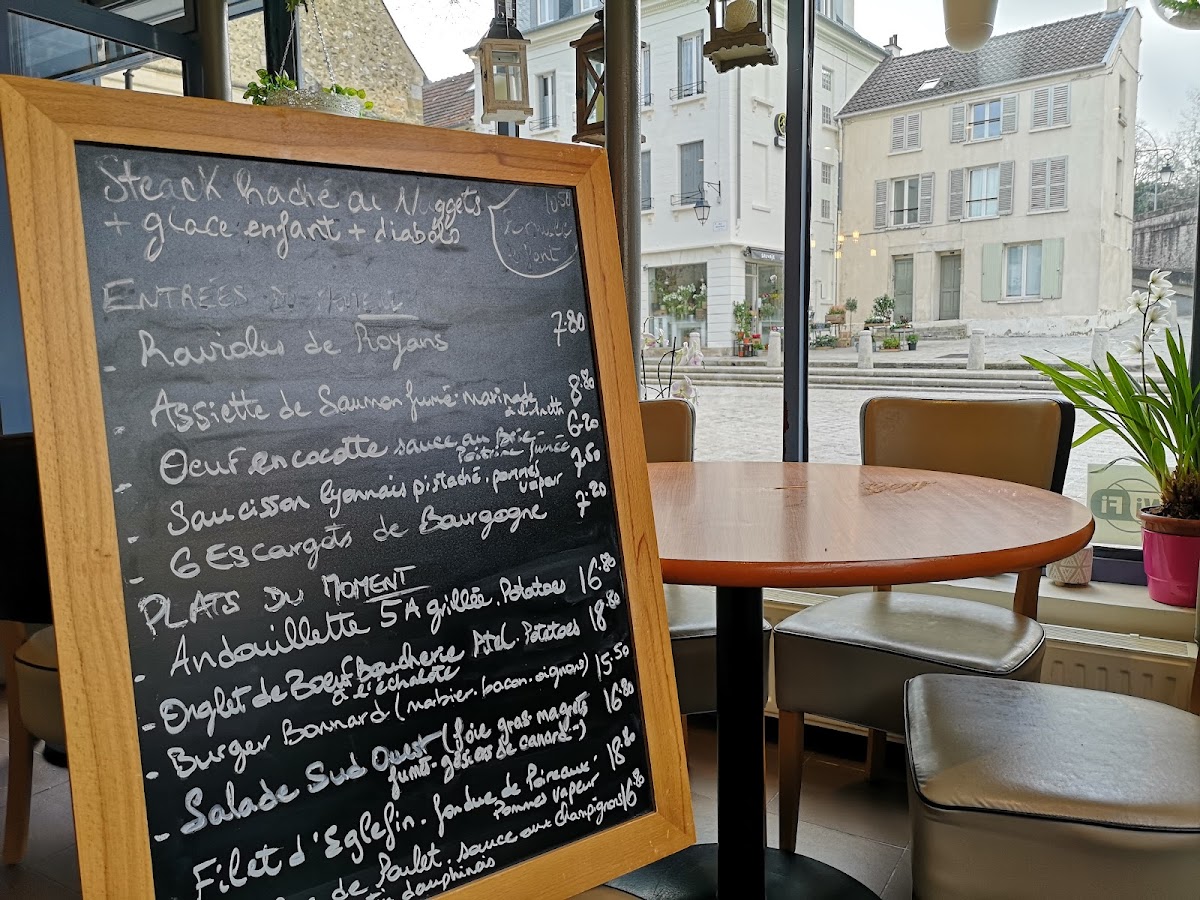 Steack haché ou Nuggets 10.50
+ glace enfant + diabolo
ENTRÉES DU MOMENT
- Ravioles de Royans 7.80
- Assiette de Saumon fumé. marinade 8.80
à l'aneth
- Oeuf en cocotte sauce au Brie 6.20
Poitrine fumée
- Saucisson lyonnais pistaché. pommes 7.50
vapeur
- 6 Escargots de Bourgogne 7.20
PLATS DU MOMENT
- Andouillette 5A grillée. Potatoes 16.80
- Onglet de Boeuf Boucherie Potatoes 18.80
à l'échalote
- Burger Bonnard (morbier. bacon. oignons) 15.50
- Salade Sud Ouest (foie gras. magrets 16.80
fumés. gésiers de canard.)
Filet d'Eglefin. fondue de Poireaux. 18.80
Pommes vapeur
de Poulet. sauce aux champignons 16.80
dauphinois
Wi Fi